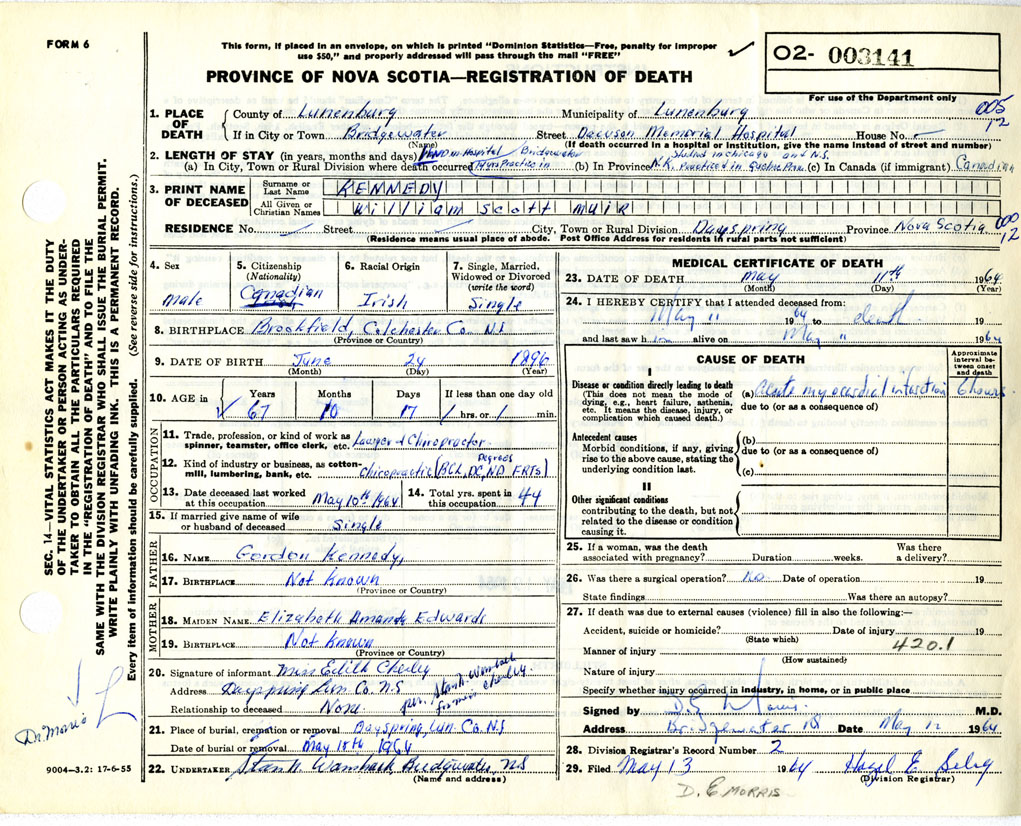 FORM 6
This form, if placed in an envelope, on which is printed "Dominion Statistics—Free, penalty for improper
use $50," and properly addressed will pass through the mail "FREE"
PROVINCE OF NOVA SCOTIA—REGISTRATION OF DEATH
02- 003141
For use of the Department only
005
12
1. PLACE OF DEATH
County of Lunenburg Municipality of Lunenburg
If in City or Town Bridgewater Street Dawson Memorial Hospital House No.
(Name) (If death occurred in a hospital or institution, give the name instead of street and number)
2. LENGTH OF STAY (in years, months and days) in Hospital Bridgewater Studied in Chicago and N.S.
(a) In City, Town or Rural Division where death occurred Practice in (b) In Province Practiced in (c) In Canada (if immigrant) Canadian
3. PRINT NAME OF DECEASED
Surname or Last Name KENNEDY
All Given or Christian Names William Scott Muir
RESIDENCE No. Street City, Town or Rural Division Dayspring Province Nova Scotia
000
12
(Residence means usual place of abode. Post Office Address for residents in rural parts not sufficient)
4. Sex
Male
5. Citizenship (Nationality)
Canadian
6. Racial Origin
Irish
7. Single, Married, Widowed or Divorced (write the word)
Single
8. BIRTHPLACE Brookfield, Colchester Co. N.S
(Province or Country)
9. DATE OF BIRTH June 24 1896
(Month) (Day) (Year)
10. AGE in Years Months Days If less than one day old
67 10 17 hrs. or min.
OCCUPATION
11. Trade, profession, or kind of work as spinner, teamster, office clerk, etc. Lawyer & Chiropractor
12. Kind of industry or business, as cotton-mill, lumbering, bank, etc. Chiropractic Degrees (BCL, DC, ND, FRTS)
13. Date deceased last worked at this occupation May 10th 1964
14. Total yrs. spent in this occupation 44
15. If married give name of wife or husband of deceased Single
FATHER
16. NAME Gordon Kennedy,
17. BIRTHPLACE Not Known
(Province or Country)
MOTHER
18. MAIDEN NAME Elizabeth Amanda Edwards
19. BIRTHPLACE Not Known
(Province or Country)
20. Signature of informant Miss Edith
Address Dayspring Lun. Co. N.S
Relationship to deceased None
per. Stan N. Wambach
for miss
21. Place of burial, cremation or removal Dayspring, Lun. Co. N.S
Date of burial or removal May 1964
22. UNDERTAKER Stan N. Wambach, Bridgewater, NS
(Name and address)
MEDICAL CERTIFICATE OF DEATH
23. DATE OF DEATH May 11th 1964
(Month) (Day) (Year)
24. I HEREBY CERTIFY that I attended deceased from:
May 11 1964 to death 19
and last saw him alive on May 11 1964
CAUSE OF DEATH
Approximate interval between onset and death
I
Disease or condition directly leading to death
(This does not mean the mode of dying, e.g., heart failure, asthenia, etc. It means the disease, injury, or complication which caused death.)
(a) Acute myocardial infarction 6 hours
due to (or as a consequence of)
Antecedent causes
Morbid conditions, if any, giving rise to the above cause, stating the underlying condition last.
(b)
due to (or as a consequence of)
(c)
II
Other significant conditions
contributing to the death, but not related to the disease or condition causing it.
25. If a woman, was the death associated with pregnancy? Duration weeks. Was there a delivery?
26. Was there a surgical operation? No Date of operation 19
State findings Was there an autopsy?
27. If death was due to external causes (violence) fill in also the following:—
Accident, suicide or homicide? Date of injury 19
(State which)
420.1
Manner of injury
(How sustained)
Nature of injury
Specify whether injury occurred in industry, in home, or in public place
Signed by D.E. Morris M.D.
Address Bridgewater NS Date May 12 1964
28. Division Registrar's Record Number 2
29. Filed May 13 1964 Hazel E. Selig
(Division Registrar)
D. E MORRIS
SEC. 14—VITAL STATISTICS ACT MAKES IT THE DUTY
OF THE UNDERTAKER OR PERSON ACTING AS UNDER-
TAKER TO OBTAIN ALL THE PARTICULARS REQUIRED
IN THE "REGISTRATION OF DEATH" AND TO FILE THE
SAME WITH THE DIVISION REGISTRAR WHO SHALL ISSUE THE BURIAL PERMIT.
WRITE PLAINLY WITH UNFADING INK. THIS IS A PERMANENT RECORD.
Every item of information should be carefully supplied. (See reverse side for instructions.)
Dr. Morris
9004—3.2: 17-6-55